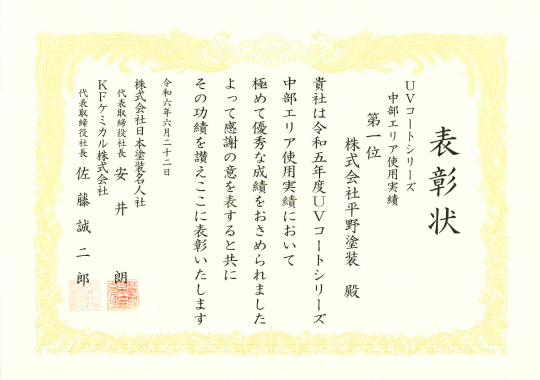 表彰状
UVコートシリーズ
中部エリア使用実績
第一位
株式会社平野塗装 殿
貴社は令和五年度UVコートシリーズ
中部エリア使用実績において
極めて優秀な成績をおさめられました
よって感謝の意を表すると共に
その功績を讃えここに表彰いたします
令和六年六月二十二日
株式会社日本塗装名人社
代表取締役社長 安井 朗
KFケミカル株式会社
代表取締役社長 佐藤誠二郎